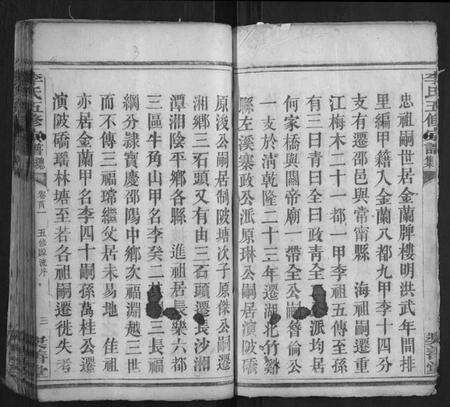 忠祖嗣世居金蘭牌樓明洪武年間排
里編甲籍入金蘭八都九甲李十四分
支有遷邵邑與常甯縣　海祖嗣遷重
江梅木二十一都一甲李祖五傳至孫
有三曰青曰全曰政青全派均居
何家橋與關帝廟一帶全公嗣晉倫公
一支於淸乾隆二十三年遷湖北竹谿
縣左溪寨政公派原琳公嗣居演陂橋
原浚公嗣居制陂塘次子原傑公嗣遷
湘鄉三石頭又有由三石頭遷長沙湘
潭湘陰平鄉各縣　進祖居長樂六都
三區牛角山甲名李癸二三長福
綱分隸寶慶邵陽中鄉次福淵越三世
而不傳三福璀繼父居未易地　佳祖
亦居金蘭甲名李四十嗣孫萬桂公遷
演陂橋瑶林塘至若各祖嗣遷徙失考
李氏五修
卷首一
五修源流序
三